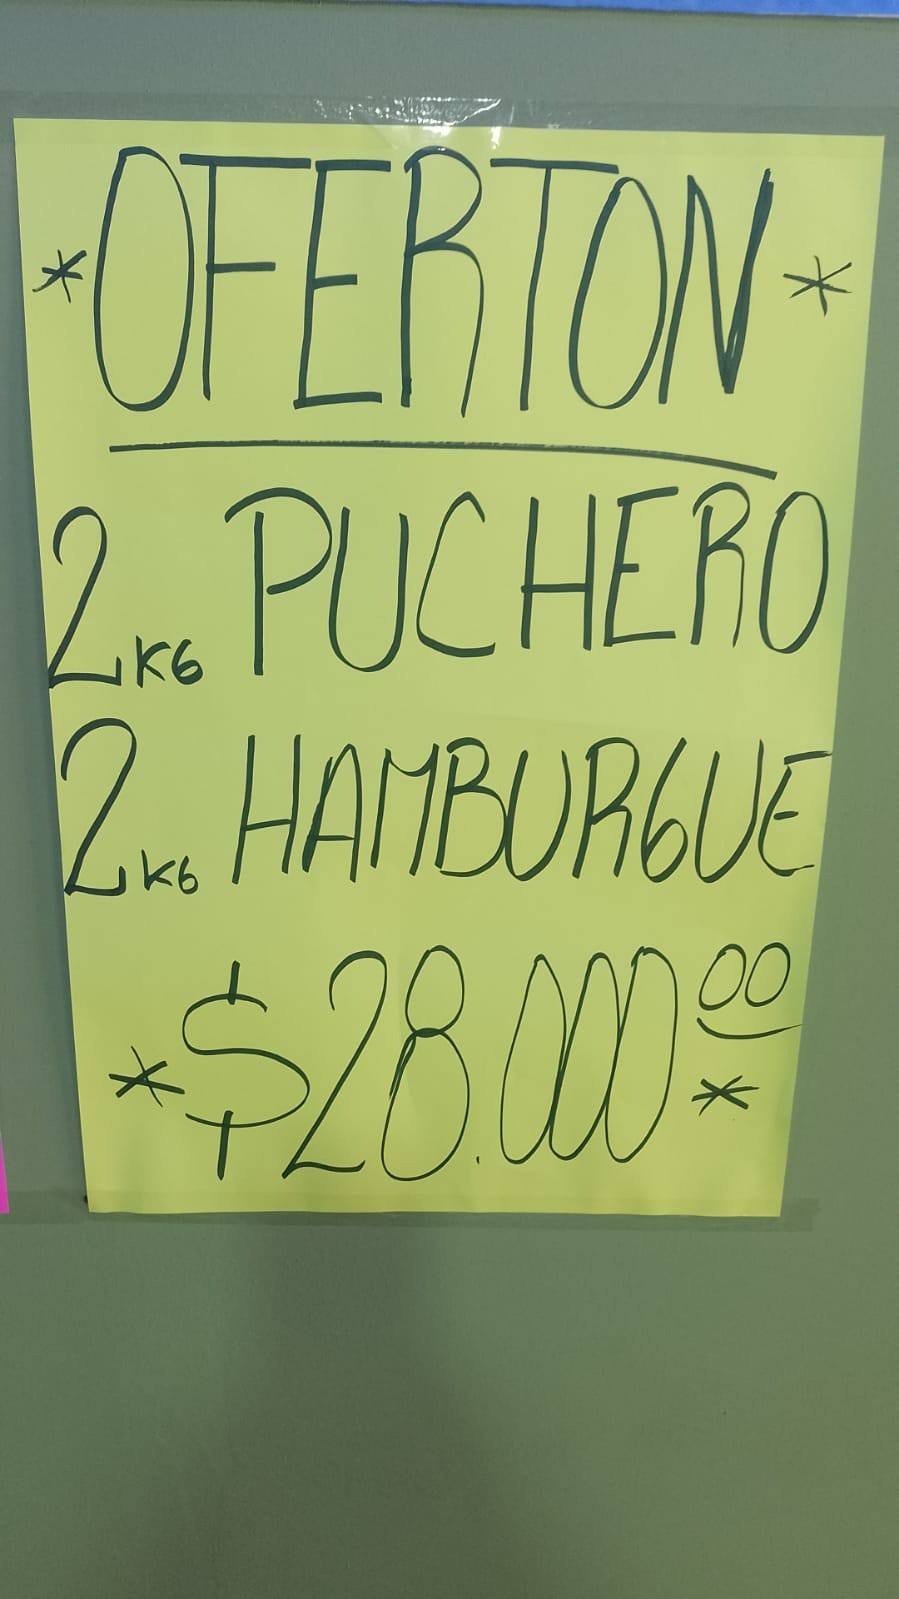 *OFERTON*
2KG PUCHERO
2KG HAMBURGUE
*$28.00000*